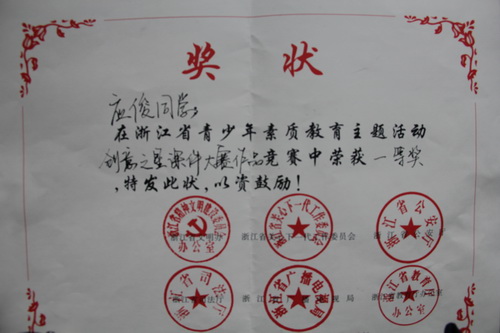 奖状
应俊同学
在浙江省青少年素质教育主题活动
创意之星课件大赛作品竞赛中荣获一等奖
,特发此状,以资鼓励!
浙江省关心下一代工作委员会
浙江省公安厅
浙江省司法厅
浙江省广播电视局
浙江省教育厅办公室